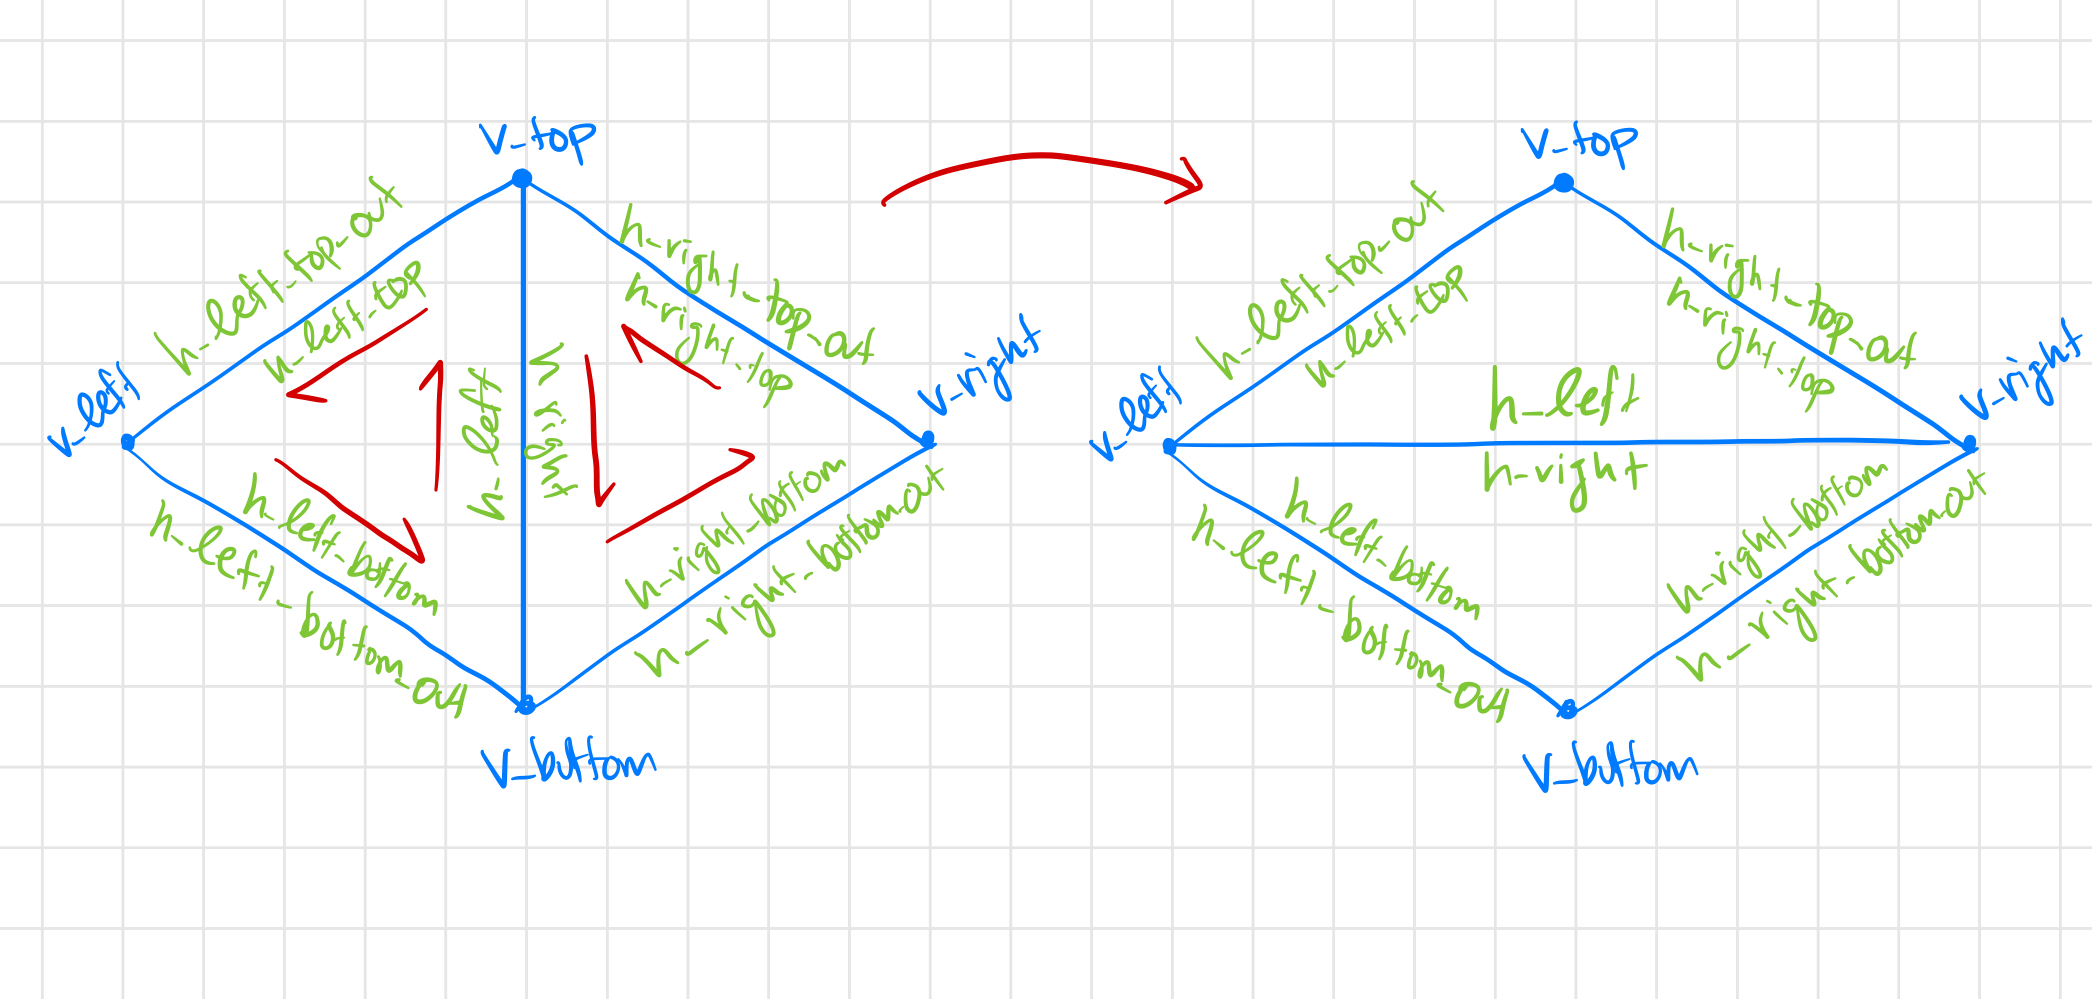 v_top
h_left_top_out
h_left_top
h_right_top_out
h_right_top
v_left
v_right
h_left
h_right
h_left_bottom
h_left_bottom_out
h_right_bottom
h_right_bottom_out
v_bottom
v_top
h_left_top_out
h_left_top
h_right_top_out
h_right_top
v_left
v_right
h_left
h_right
h_left_bottom
h_left_bottom_out
h_right_bottom
h_right_bottom_out
v_bottom